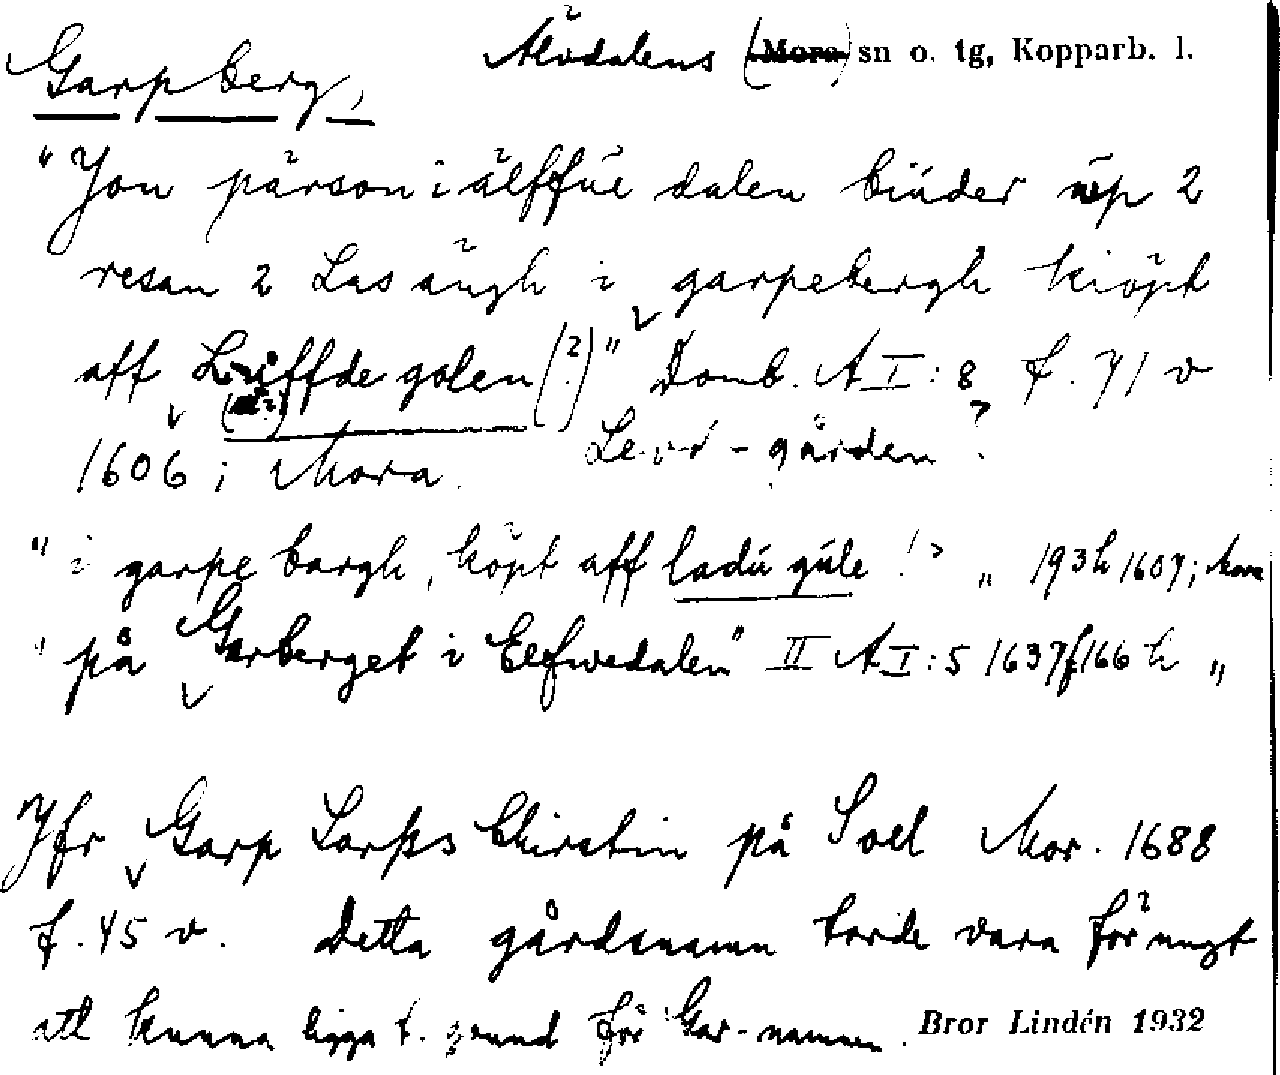 Garpberg, Älvdalens (Mora) sn o. tg, Kopparb. l.
"Jon pärson i älffúe dalen biúder úp 2
resan 2 Las ängh i garpebergh kiöpt
aff Lüffde golen (?)" Domb. A I : 8 f. 71 v
1606 ; Mora. Levd - gården ?
" i garpe bargh, köpt aff ladú gúle !? „ 193 h 1607; Mora
" på Garberget i Elefwedalen" II A I : 5 1637 f 166 h „
Jfr Garp Larses Chirstin på Soel Mor. 1688
f. 45 v. Detta gårdsnamn torde vara för ungt
att kunna ligga t. grund för Gar-namnen. Bror Lindén 1932